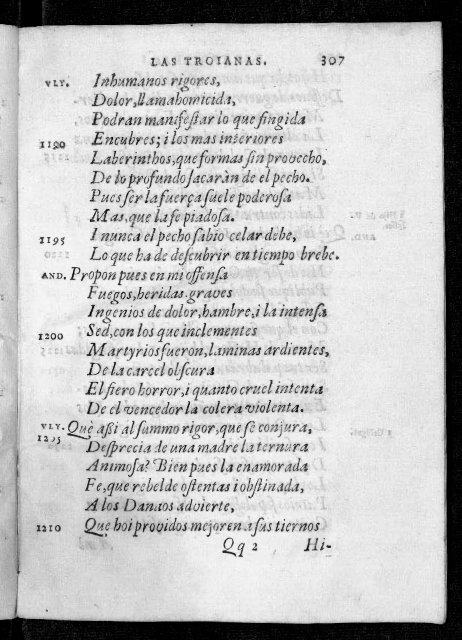 LAS TROIANAS. 307
VLY. Inhumanos rigores,
Dolor, llama homicida,
Podran manifestar lo que fingida
1190 Encubres; i los mas inferiores
Laberinthos, que formas sin provecho,
De lo profundo sacaràn de el pecho.
Pues ser la fuerça suele poderosa
Mas, que la fe piadosa.
1195 I nunca el pecho sabio celar debe,
Lo que ha de descubrir en tiempo brebe.
AND. Propon pues en mi offensa
Fuegos, heridas graves
Ingenios de dolor, hambre, i la intensa
1200 Sed, con los que inclementes
Martyrios fueron, laminas ardientes,
De la carcel obscura
El fiero horror, i quanto cruel intenta
De el vencedor la colera violenta.
VLY. Què assi al summo rigor, que se conjura,
1205 Desprecia de una madre la ternura
Animosa? Bien pues la enamorada
Fe, que rebelde ostentas i obstinada,
A los Danaos advierte,
1210 Que hoi providos mejoren a sus tiernos
Qq 2 Hi-